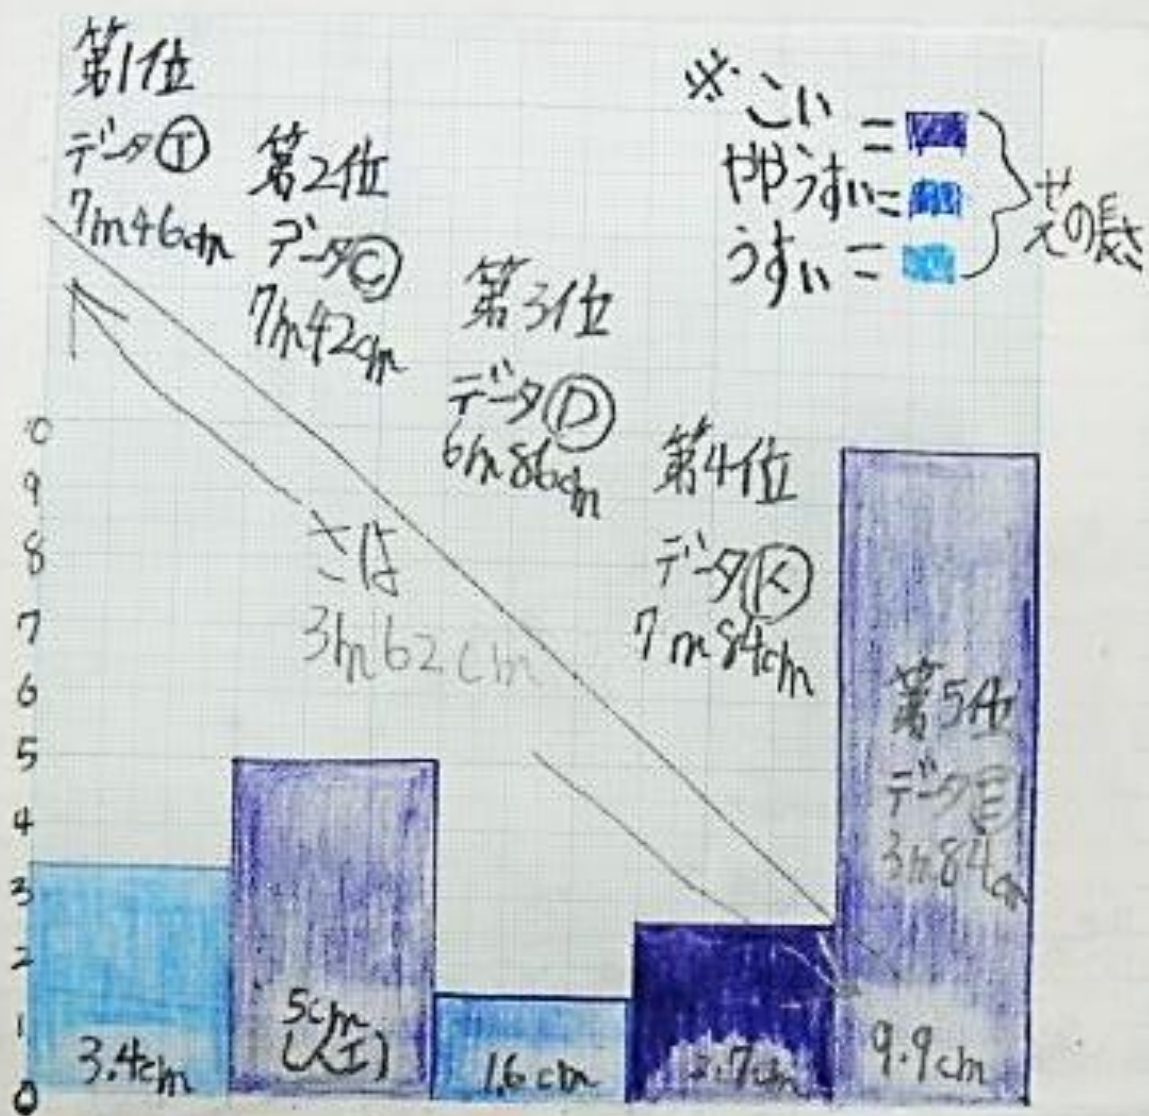 第1位
データⒾ
7m46cm
第2位
データⒸ
7m42cm
第3位
データⒹ
6m86cm
第4位
データⓀ
7m84cm
第5位
データⒺ
3m84cm
※こい=
ややうすい=
うすい=
の長さ
さは
3m62cm
10
9
8
7
6
5
4
3
2
1
0
3.4cm
5cm
(人工)
1.6cm
2.7cm
9.9cm